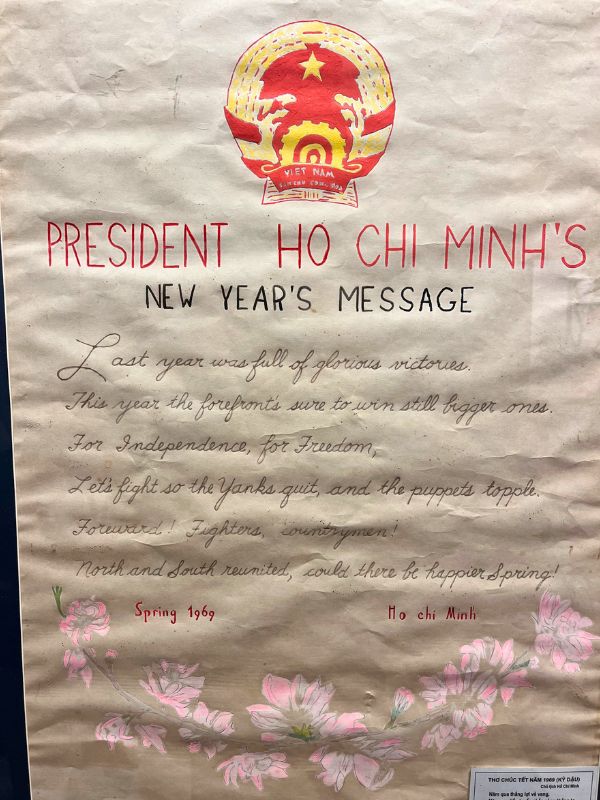 VIỆT NAM
DÂN CHỦ CỘNG HÒA
PRESIDENT HO CHI MINH'S
NEW YEAR'S MESSAGE
Last year was full of glorious victories.
This year the forefront's sure to win still bigger ones.
For Independence, for Freedom,
Let's fight so the Yanks quit, and the puppets topple.
Foreward! Fighters, countrymen!
North and South reunited, could there be happier Spring!
Spring 1969
Ho chi Minh
THƠ CHÚC TẾT NĂM 1969 (KỶ DẬU)
Chủ tịch Hồ Chí Minh
Năm qua thắng lợi vẻ vang,